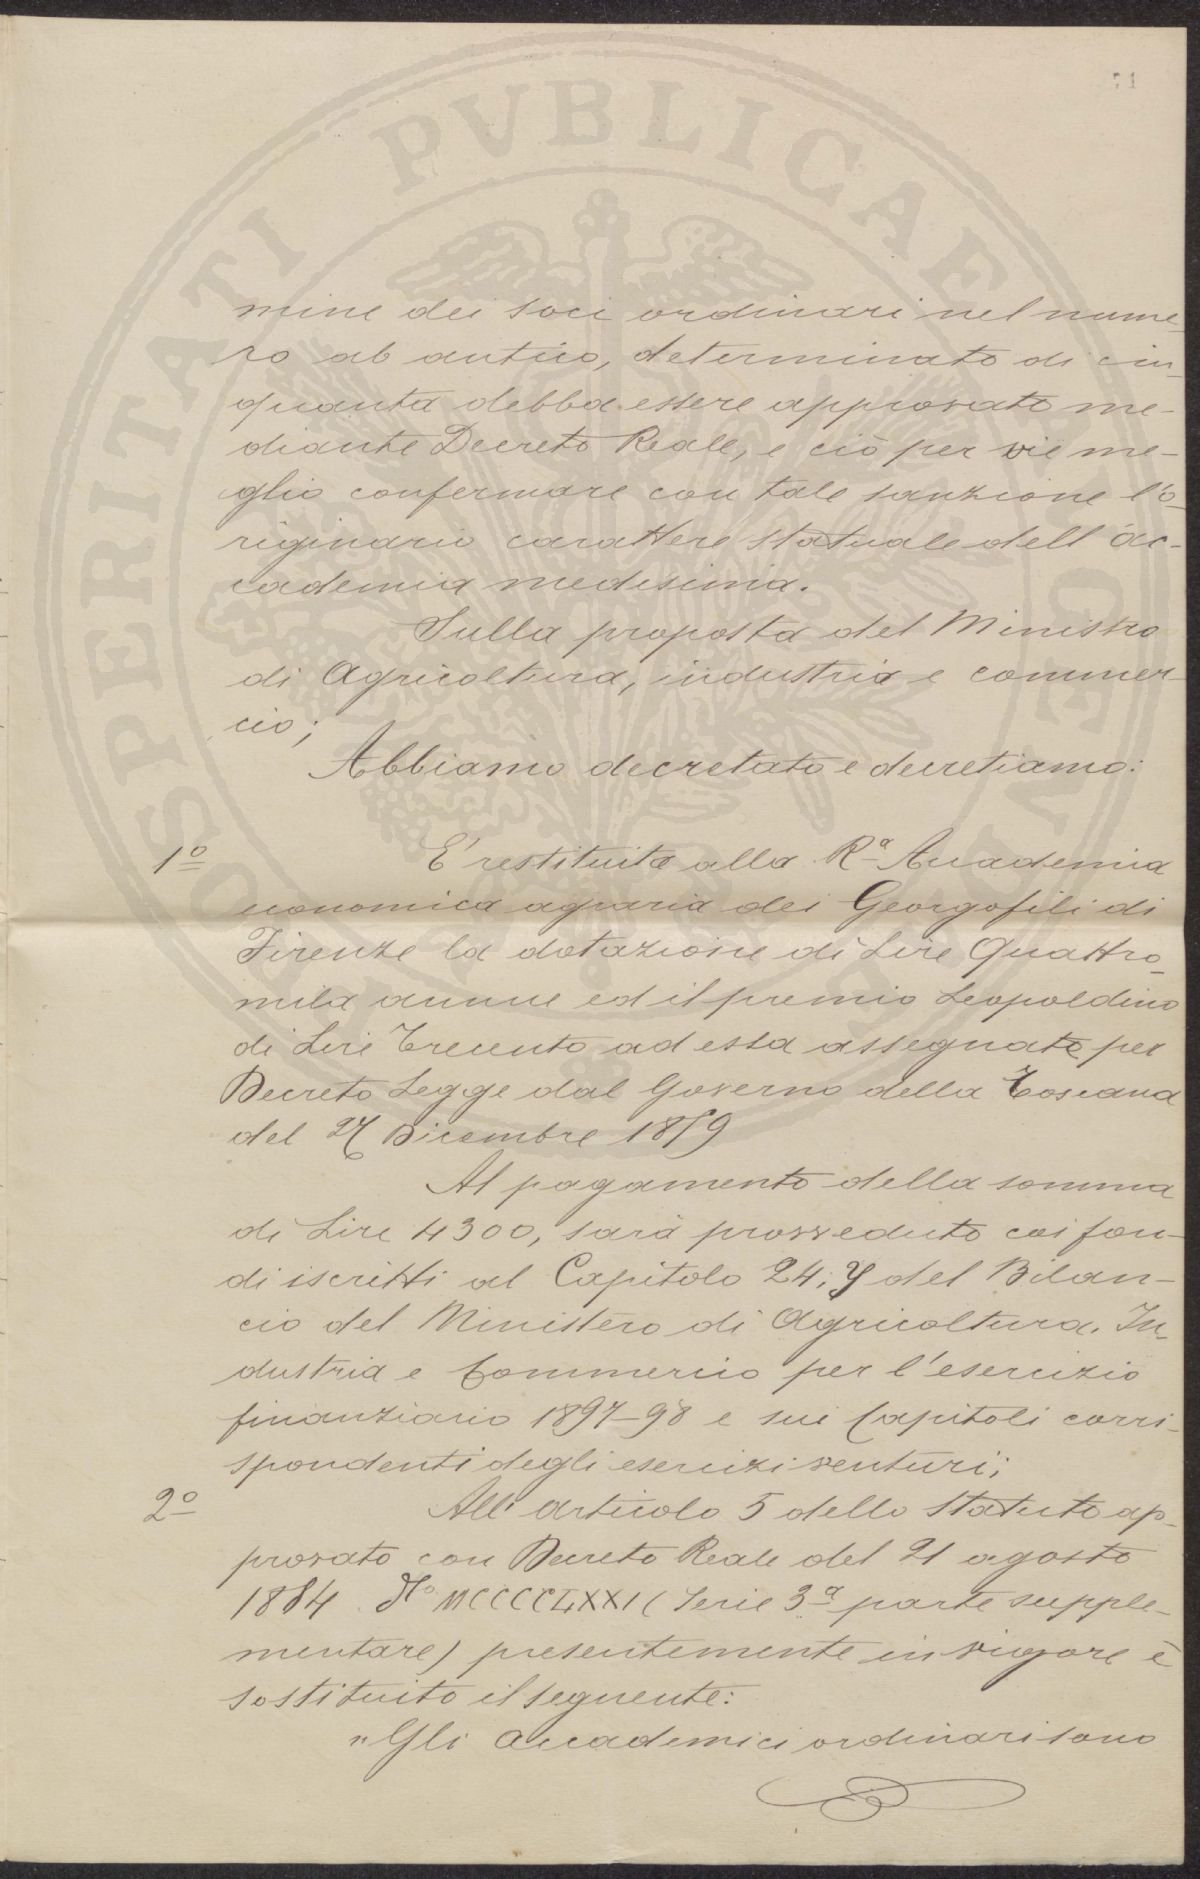 mine dei soci ordinari nel nume-
ro ab antico, determinato di cin-
quanta debba essere approvato me-
diante Decreto Reale, e ciò per vie me-
glio confermare con tale sanzione l'o-
riginario carattere statuale dell'ac-
cademia medesima.
Sulla proposta del Ministro
di Agricoltura, industria e commer-
cio;
Abbiamo decretato e decretiamo:
1º E' restituita alla Rª Accademia
economica agraria dei Georgofili di
Firenze la dotazione di Lire Quattro-
mila annue ed il premio Leopoldino
di Lire Trecento ad essa assegnate per
Decreto Legge dal Governo della Toscana
del 27 Dicembre 1859
Al pagamento della somma
di Lire 4300, sarà provveduto coi fon-
di iscritti al Capitolo 24; del Bilan-
cio del Ministero di Agricoltura. In-
dustria e Commercio per l'esercizio
finanziario 1897-98 e sui Capitoli corri-
spondenti degli esercizi venturi;
2º All'articolo 5 dello Statuto ap-
provato con Decreto Reale del 21 agosto
1884 Nº MCCCCLXXI (Serie 3ª parte supple-
mentare) presentemente in vigore è
sostituito il seguente:
"Gli accademici ordinari sono
PROSPERITATI PVBLICAE AVGENDAE